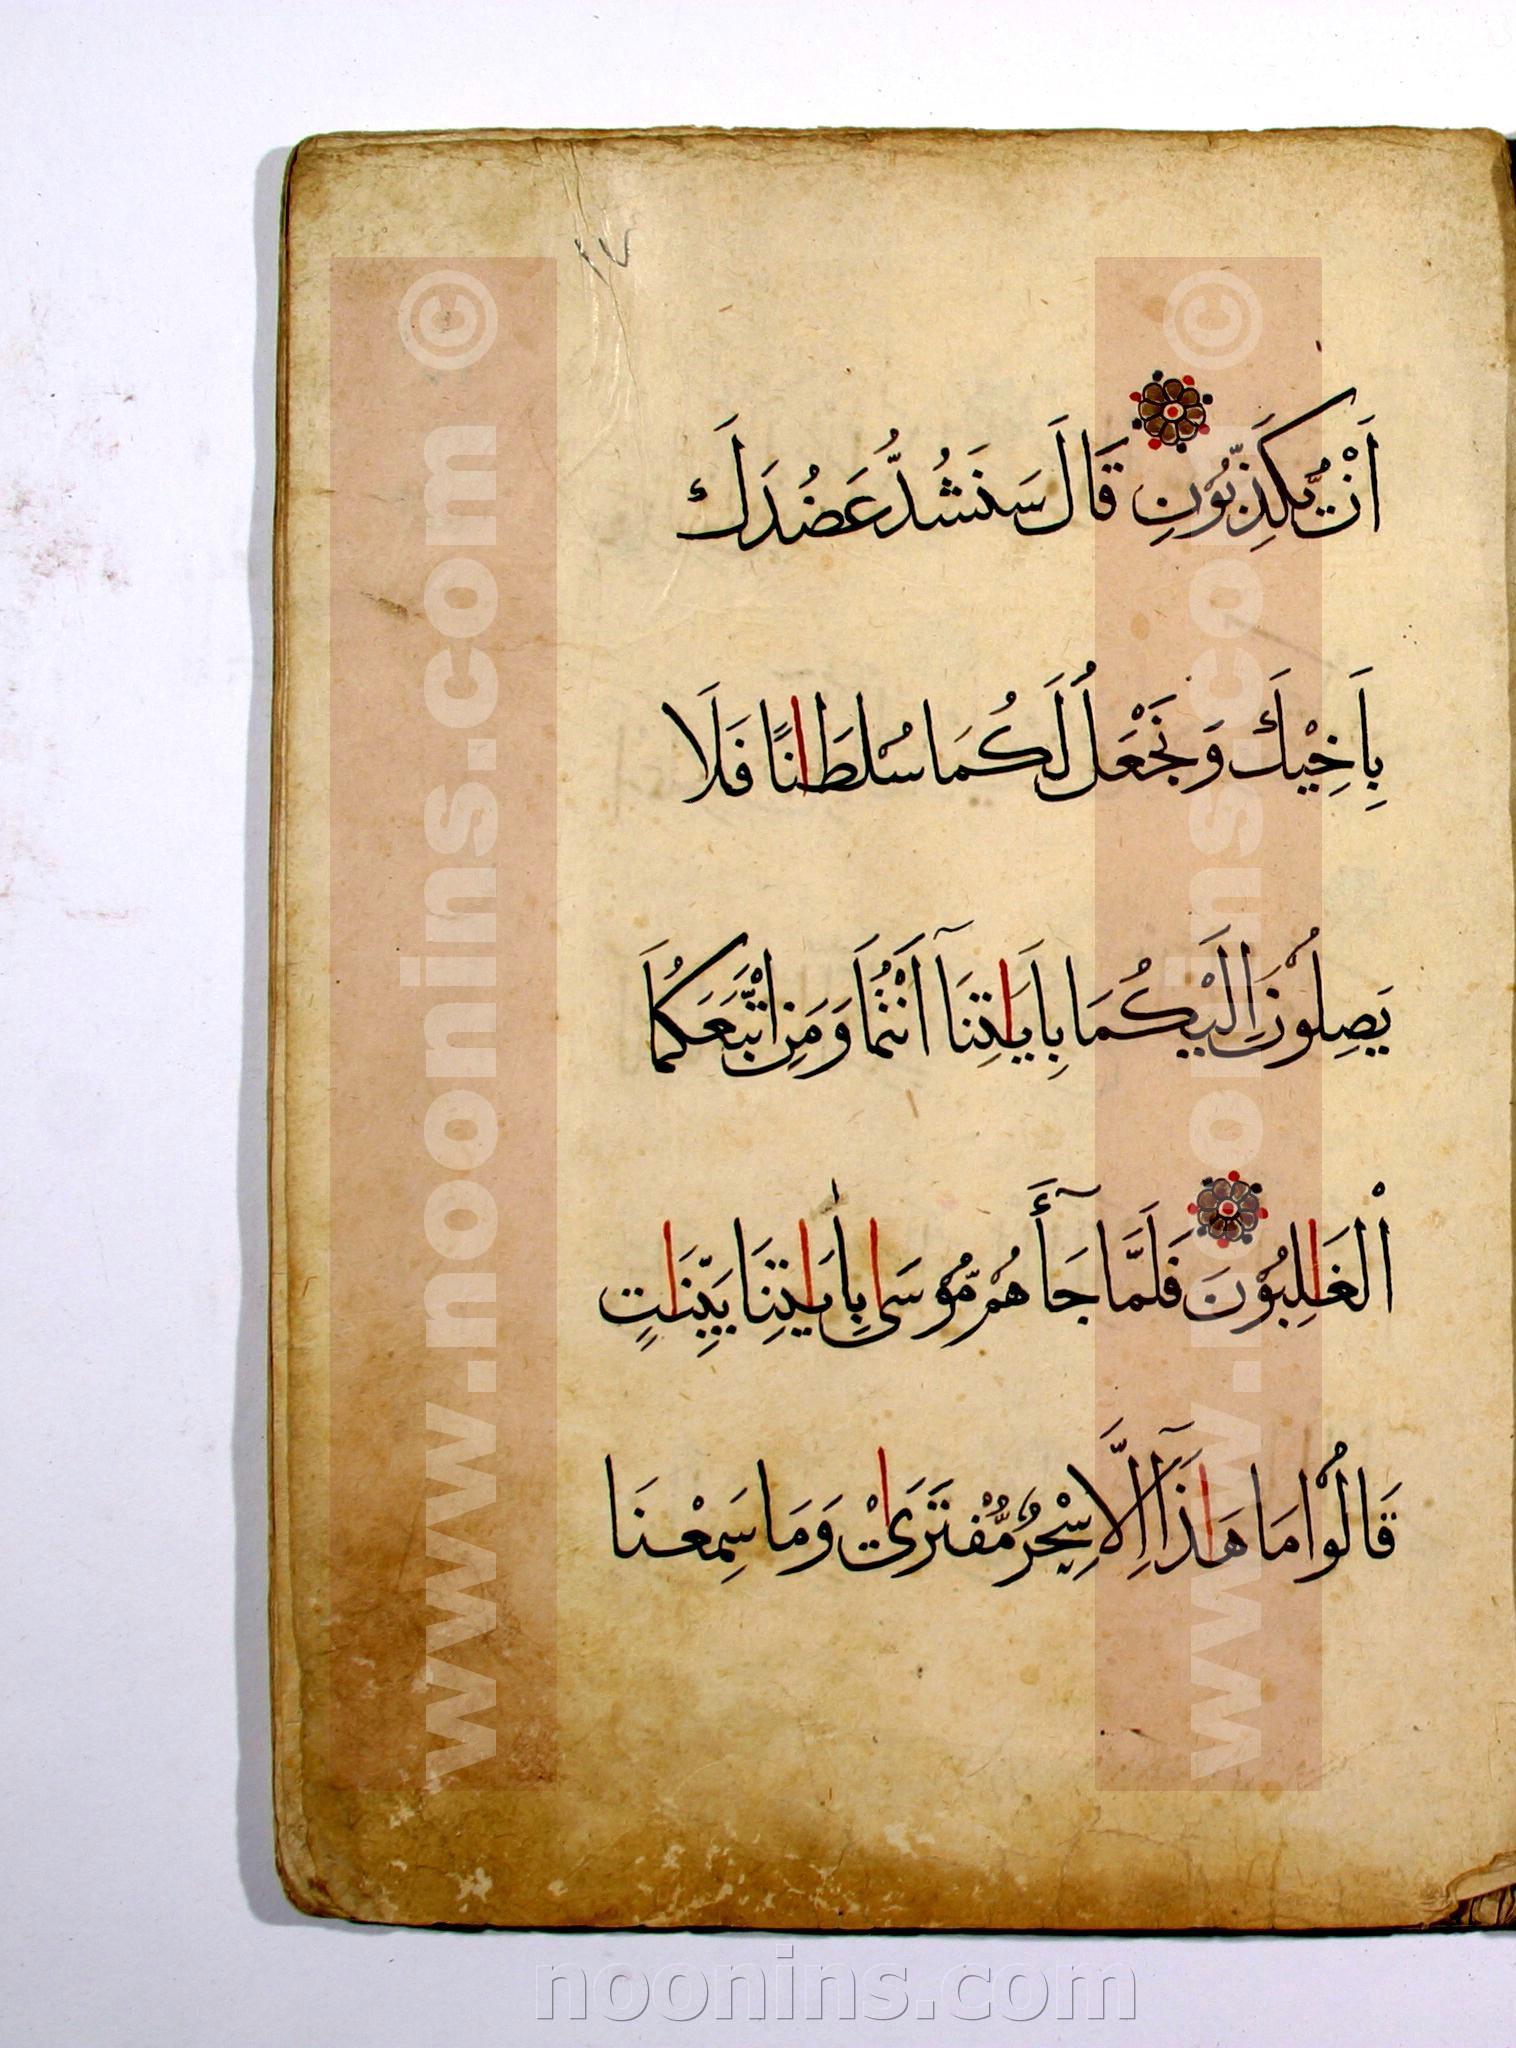 ١٧
اَنْ تُّكَذِّبُوْنِ قَالَ سَنَشُدُّ عَضُدَكَ
بِاَخِيْكَ وَنَجْعَلُ لَكُمَا سُلطَانًا فَلَا
يَصِلُوْنَ اِلَيْكُمَا بِاَيَاتِنَآ اَنْتُمَا وَمَنِ اتَّبَعَكُمَا
الْغَالِبُوْنَ فَلَمَّا جَآأَهُمْ مُّوْسَىٰ بِأَيَاتِنَا بَيِّنَاتٍ
قَالُوْا مَا هَاذَآ اِلَّا سِحْرٌ مُّفْتَرَىْ وَمَا سَمِعْنَا
www.noonins.com ©
www.noonins.com ©
noonins.com